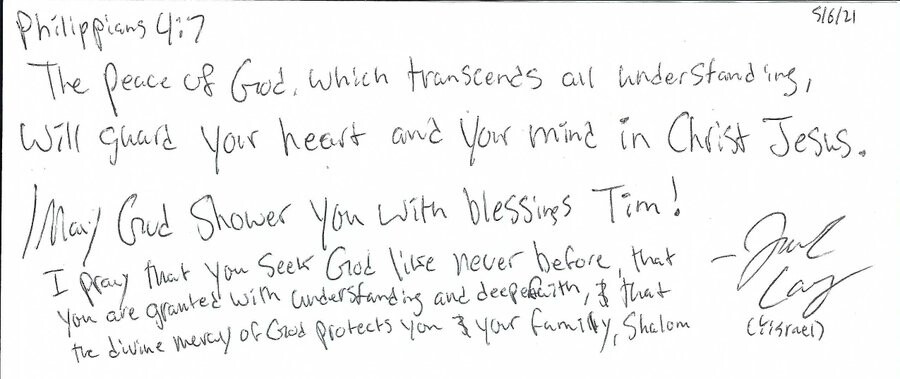 5/6/21
Philippians 4:7
The peace of God, which transcends all understanding,
Will guard your heart and your mind in Christ Jesus.
May God Shower you with blessings Tim!
I pray that you seek God like never before, that
you are granted with understanding and deeper faith, & that
the divine mercy of God protects you & your family, Shalom
(Yisrael)